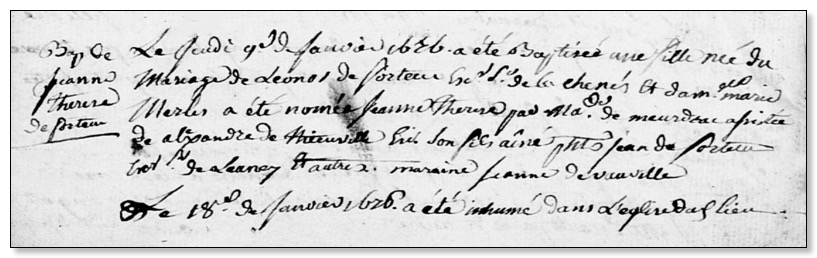 Bap de
Jeanne
Therese
de sorteu
Le Jeudi 9e de Janvier 1676. a été Baptisée une fille née du
Mariage de Leonor de sorteu Ecr Sr de le chenés Et dam.elle marie
Merles a été nomée Jeanne Therese par Ma. de meurdrac assistée
de alexandre de thieuville Eer son fils aîné pnts jean de sorteu
Ecr Sr de Et autres. maraine jeanne de
Le 18e. de Janvier 1676. a été inhumé dans L'eglise dud lieu